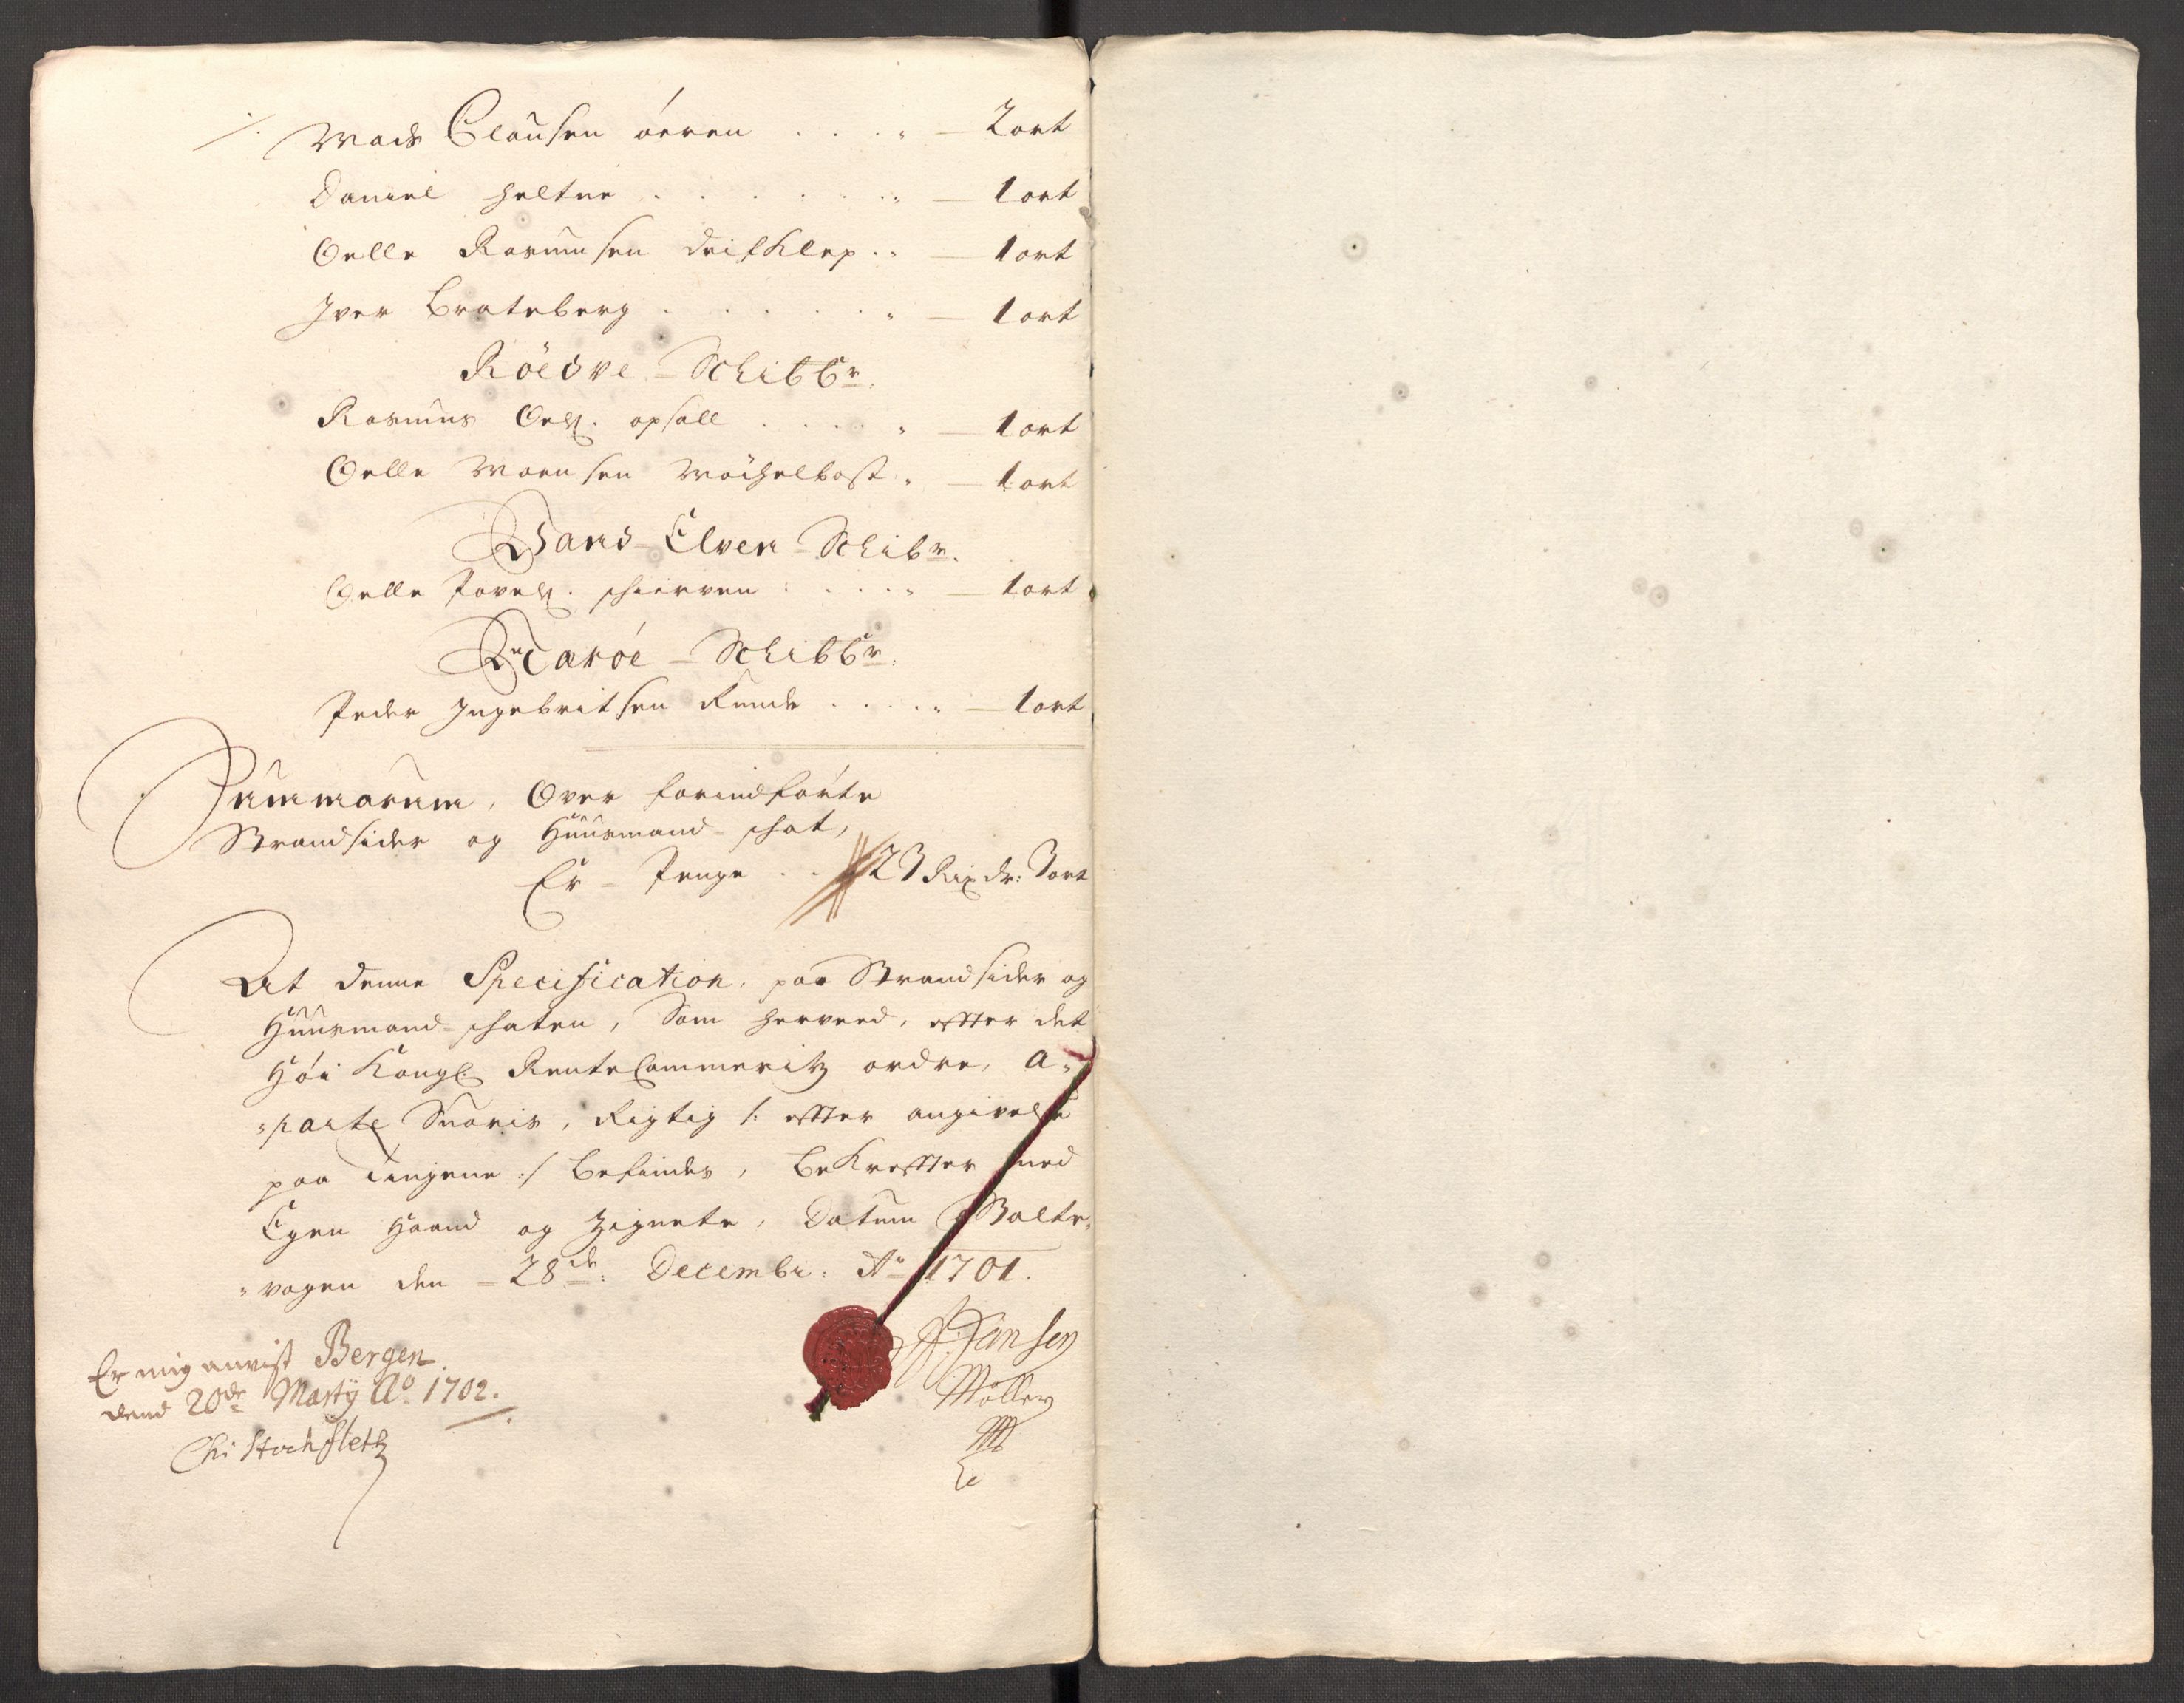 ⁒ Mads Clausen óeren . . . „ — 2 ort
Daniel Heltne . . . . . . „ — 1 ort
Oelle Rasmusen Driftklep . „ — 1 ort
Iver Brateberg . . . . . „ — 1 ort
Róedve - Schibbr.
Rasmus Oels. opsall . . . . „ — 1 ort
Oelle Monsen Wächelbost „ — 1 ort
Vand - Elven - Schibr.
Oelle Povels. schierven . . . „ — 1 ort
Haróe - Schibbr.
Peder Ingebritsen Runde . . . „ — 1 ort
Summarum, Over forindførte
Strandsider og Huusmand - schat,
Er - Penge . . 23 Rixdr: 3 ort
At denne Specification, paa Strandsider og
Huusmand - schaten, Som herved, effter det
Høi Kongl. Rente Cammeritz ordre, a„
„parte Giøris, Rigtig /: effter angivelse
paa Tingene :/ befindes, bekreffter med
Egen Haand og Zignete, Datum Walte„
„vogen den - 28de: Decembr: Ao 1701.
A. Jansen
Möller
Er mig anvist Bergen
dend 20de Martij Ao 1702.
Chr Stochfleth